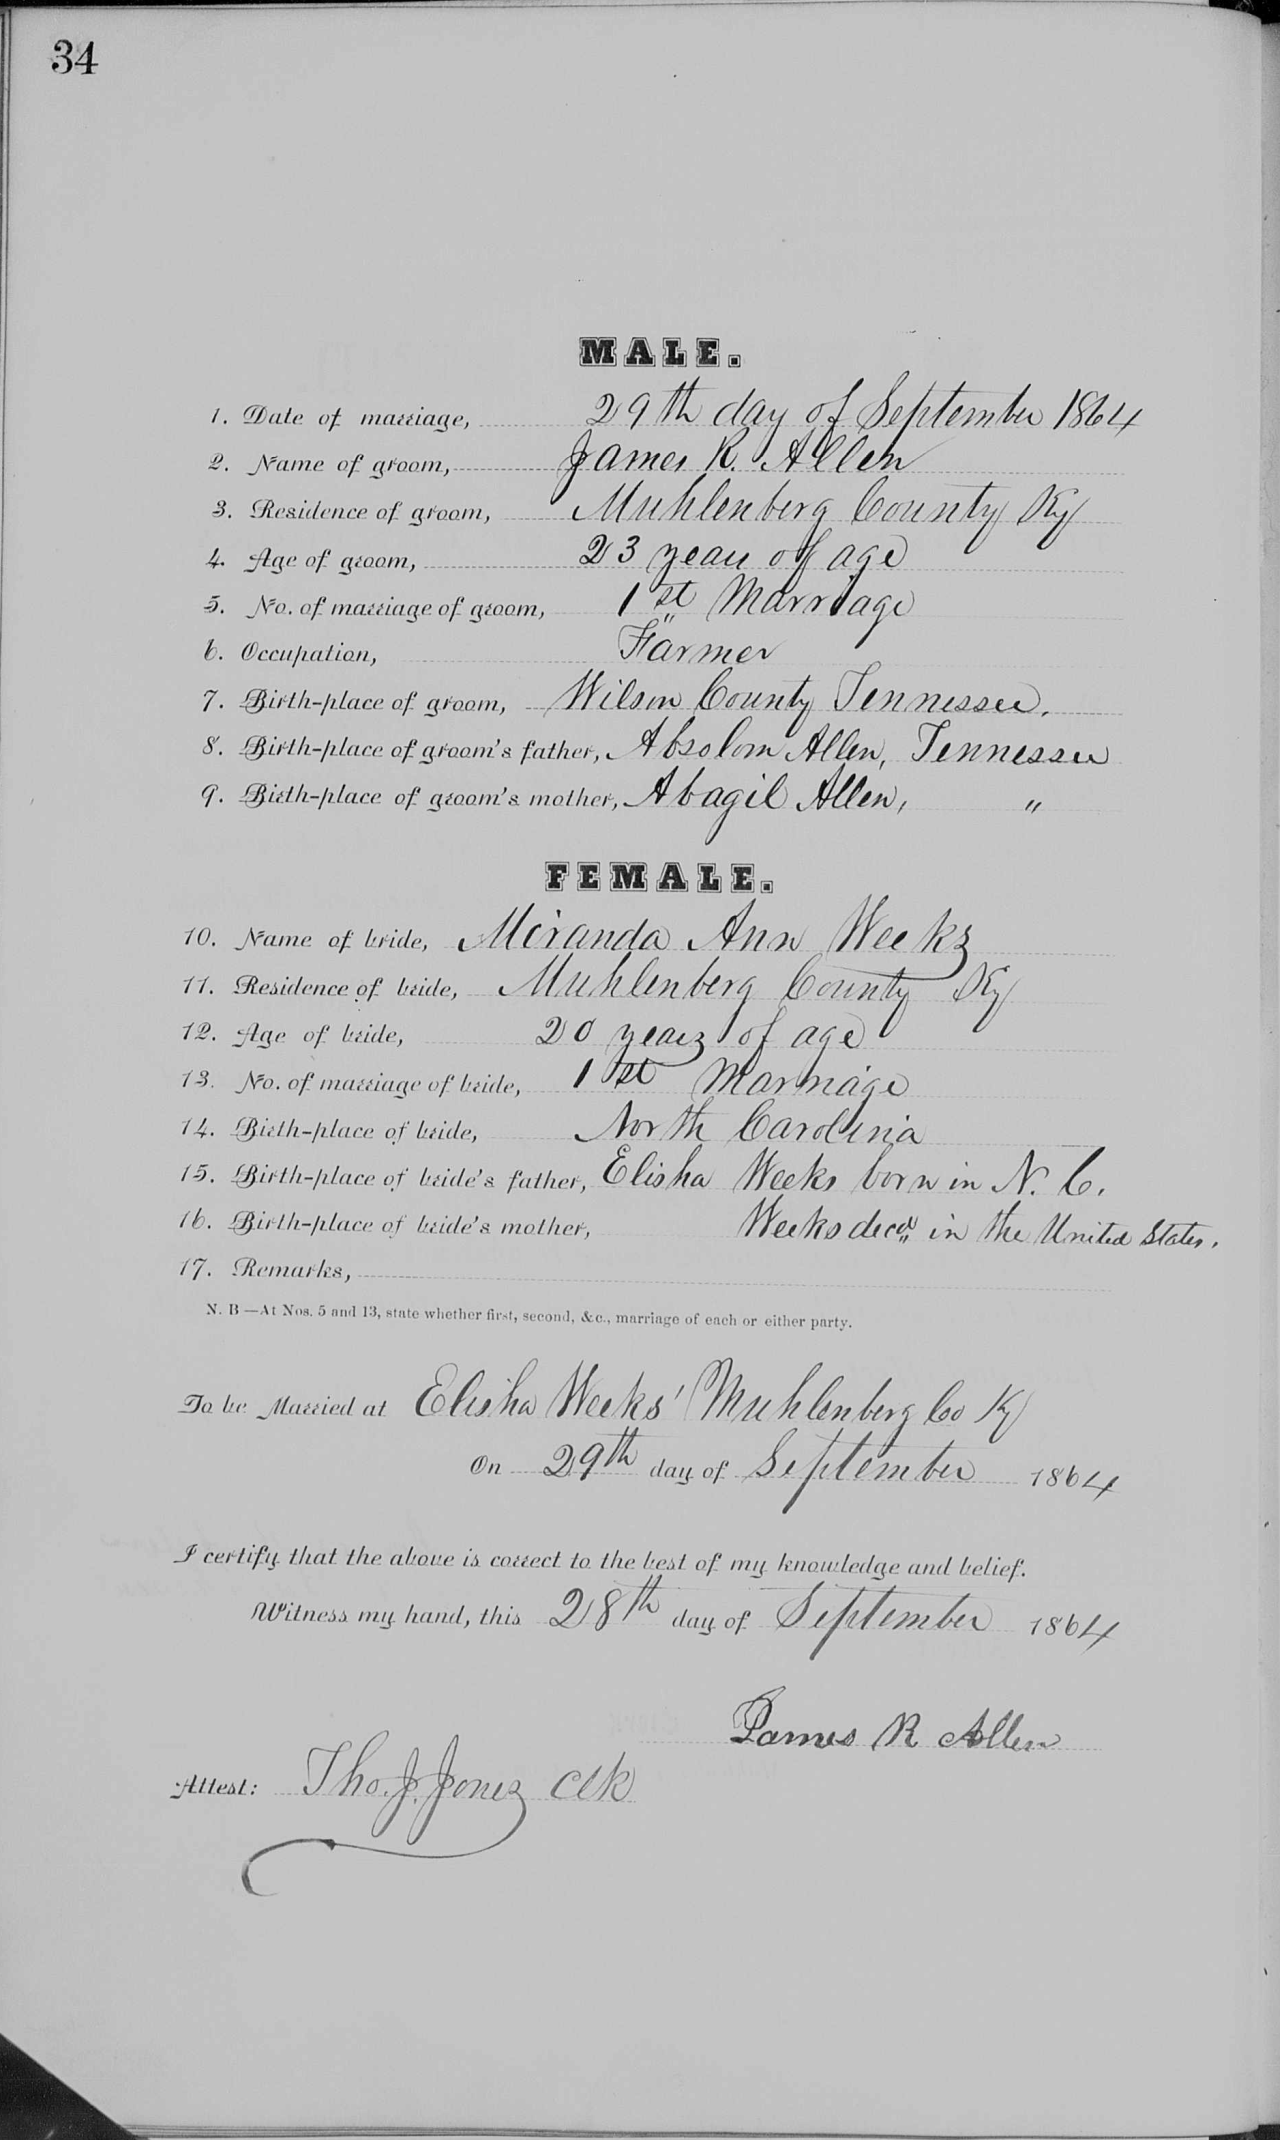 34
MALE.
1. Date of marriage, 29th day of September 1864
2. Name of groom, James R. Allen
3. Residence of groom, Muhlenberg County Ky
4. Age of groom, 23 years of age
5. No. of marriage of groom, 1st Marriage
6. Occupation, Farmer
7. Birth-place of groom, Wilson County Tennessee.
8. Birth-place of groom's father, Absolom Allen, Tennessee
9. Birth-place of groom's mother, Abagil Allen, "
FEMALE.
10. Name of bride, Miranda Ann Weeks
11. Residence of bride, Muhlenberg County Ky
12. Age of bride, 20 years of age
13. No. of marriage of bride, 1st Marriage
14. Birth-place of bride, North Carolina
15. Birth-place of bride's father, Elisha Weeks born in N. C.
16. Birth-place of bride's mother, Weeks decd in the United States.
17. Remarks,
N. B—At Nos. 5 and 13, state whether first, second, &c., marriage of each or either party.
To be Married at Elisha Weeks' Muhlenberg Co Ky
On 29th day of September 1864
I certify that the above is correct to the best of my knowledge and belief.
Witness my hand, this 28th day of September 1864
James R Allen
Attest: Tho. J. Jones Clk